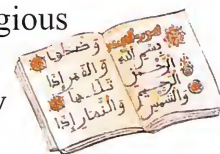 gious
y
بسم الله
الرحمن
الرحيم
والشمس
وضحها
والقمر إذا
تلها
والنهار إذا